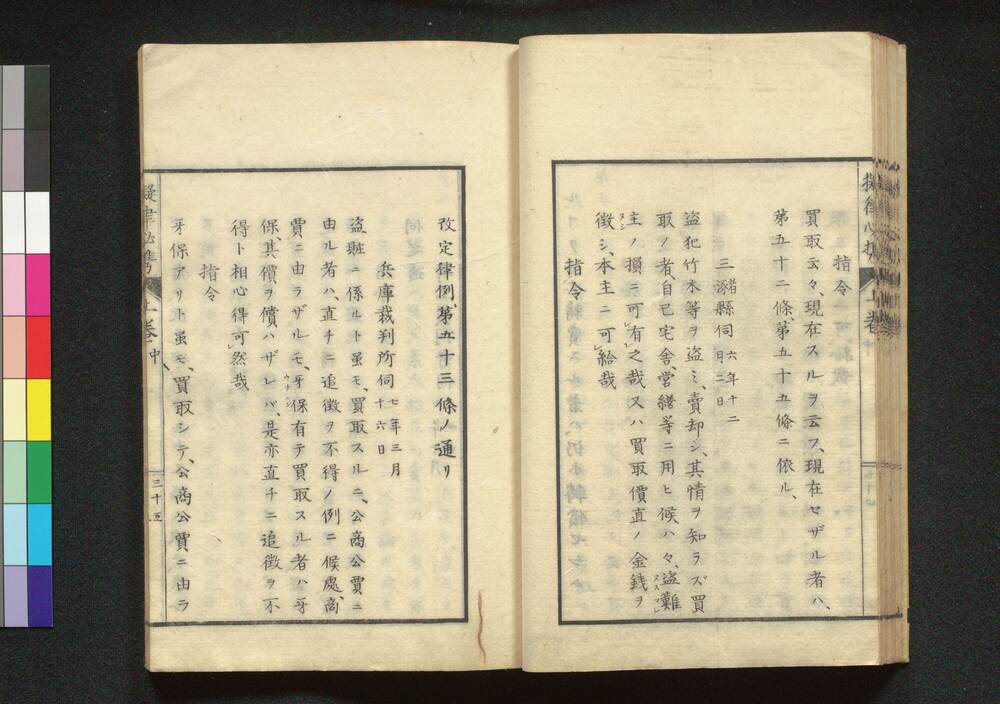 指令
買取云々、現在スルヲ云フ、現在セザル者ハ、
第五十二條、第五十五條ニ依ル、
三潴縣伺 六年十二月二日
盗犯竹木等ヲ盗ミ、賣却シ、其情ヲ知ラズ買
取ノ者、自己宅舎、營繕等ニ用ヒ候ハヾ、盗難
主ノ損ニ可有之哉又ハ買取價直ノ金銭ヲ
徴シ、本主ニ可給哉
指令
改定律例、第五十三條ノ通リ
兵庫裁判所伺 七年三月十六日
盗賍ニ係ルト虽モ、買取スルニ、公商公賈ニ
由ル者ハ、直チニ追徴ヲ不得ノ例ニ候處、商
賈ニ由ラザルモ、牙保有テ買取スル者ハ牙
保其價ヲ償ハザレバ、是亦直チニ追徴ヲ不
得ト相心得可然哉
指令
牙保アリト虽モ、買取シテ、公商公賈ニ由ラ
上巻中
三十五